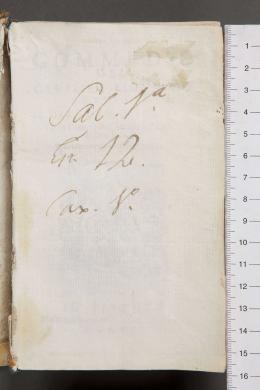 Sal. 1ª
En. 12.
Cax. 8º
1
2
3
4
5
6
7
8
9
10
11
12
13
14
15
16